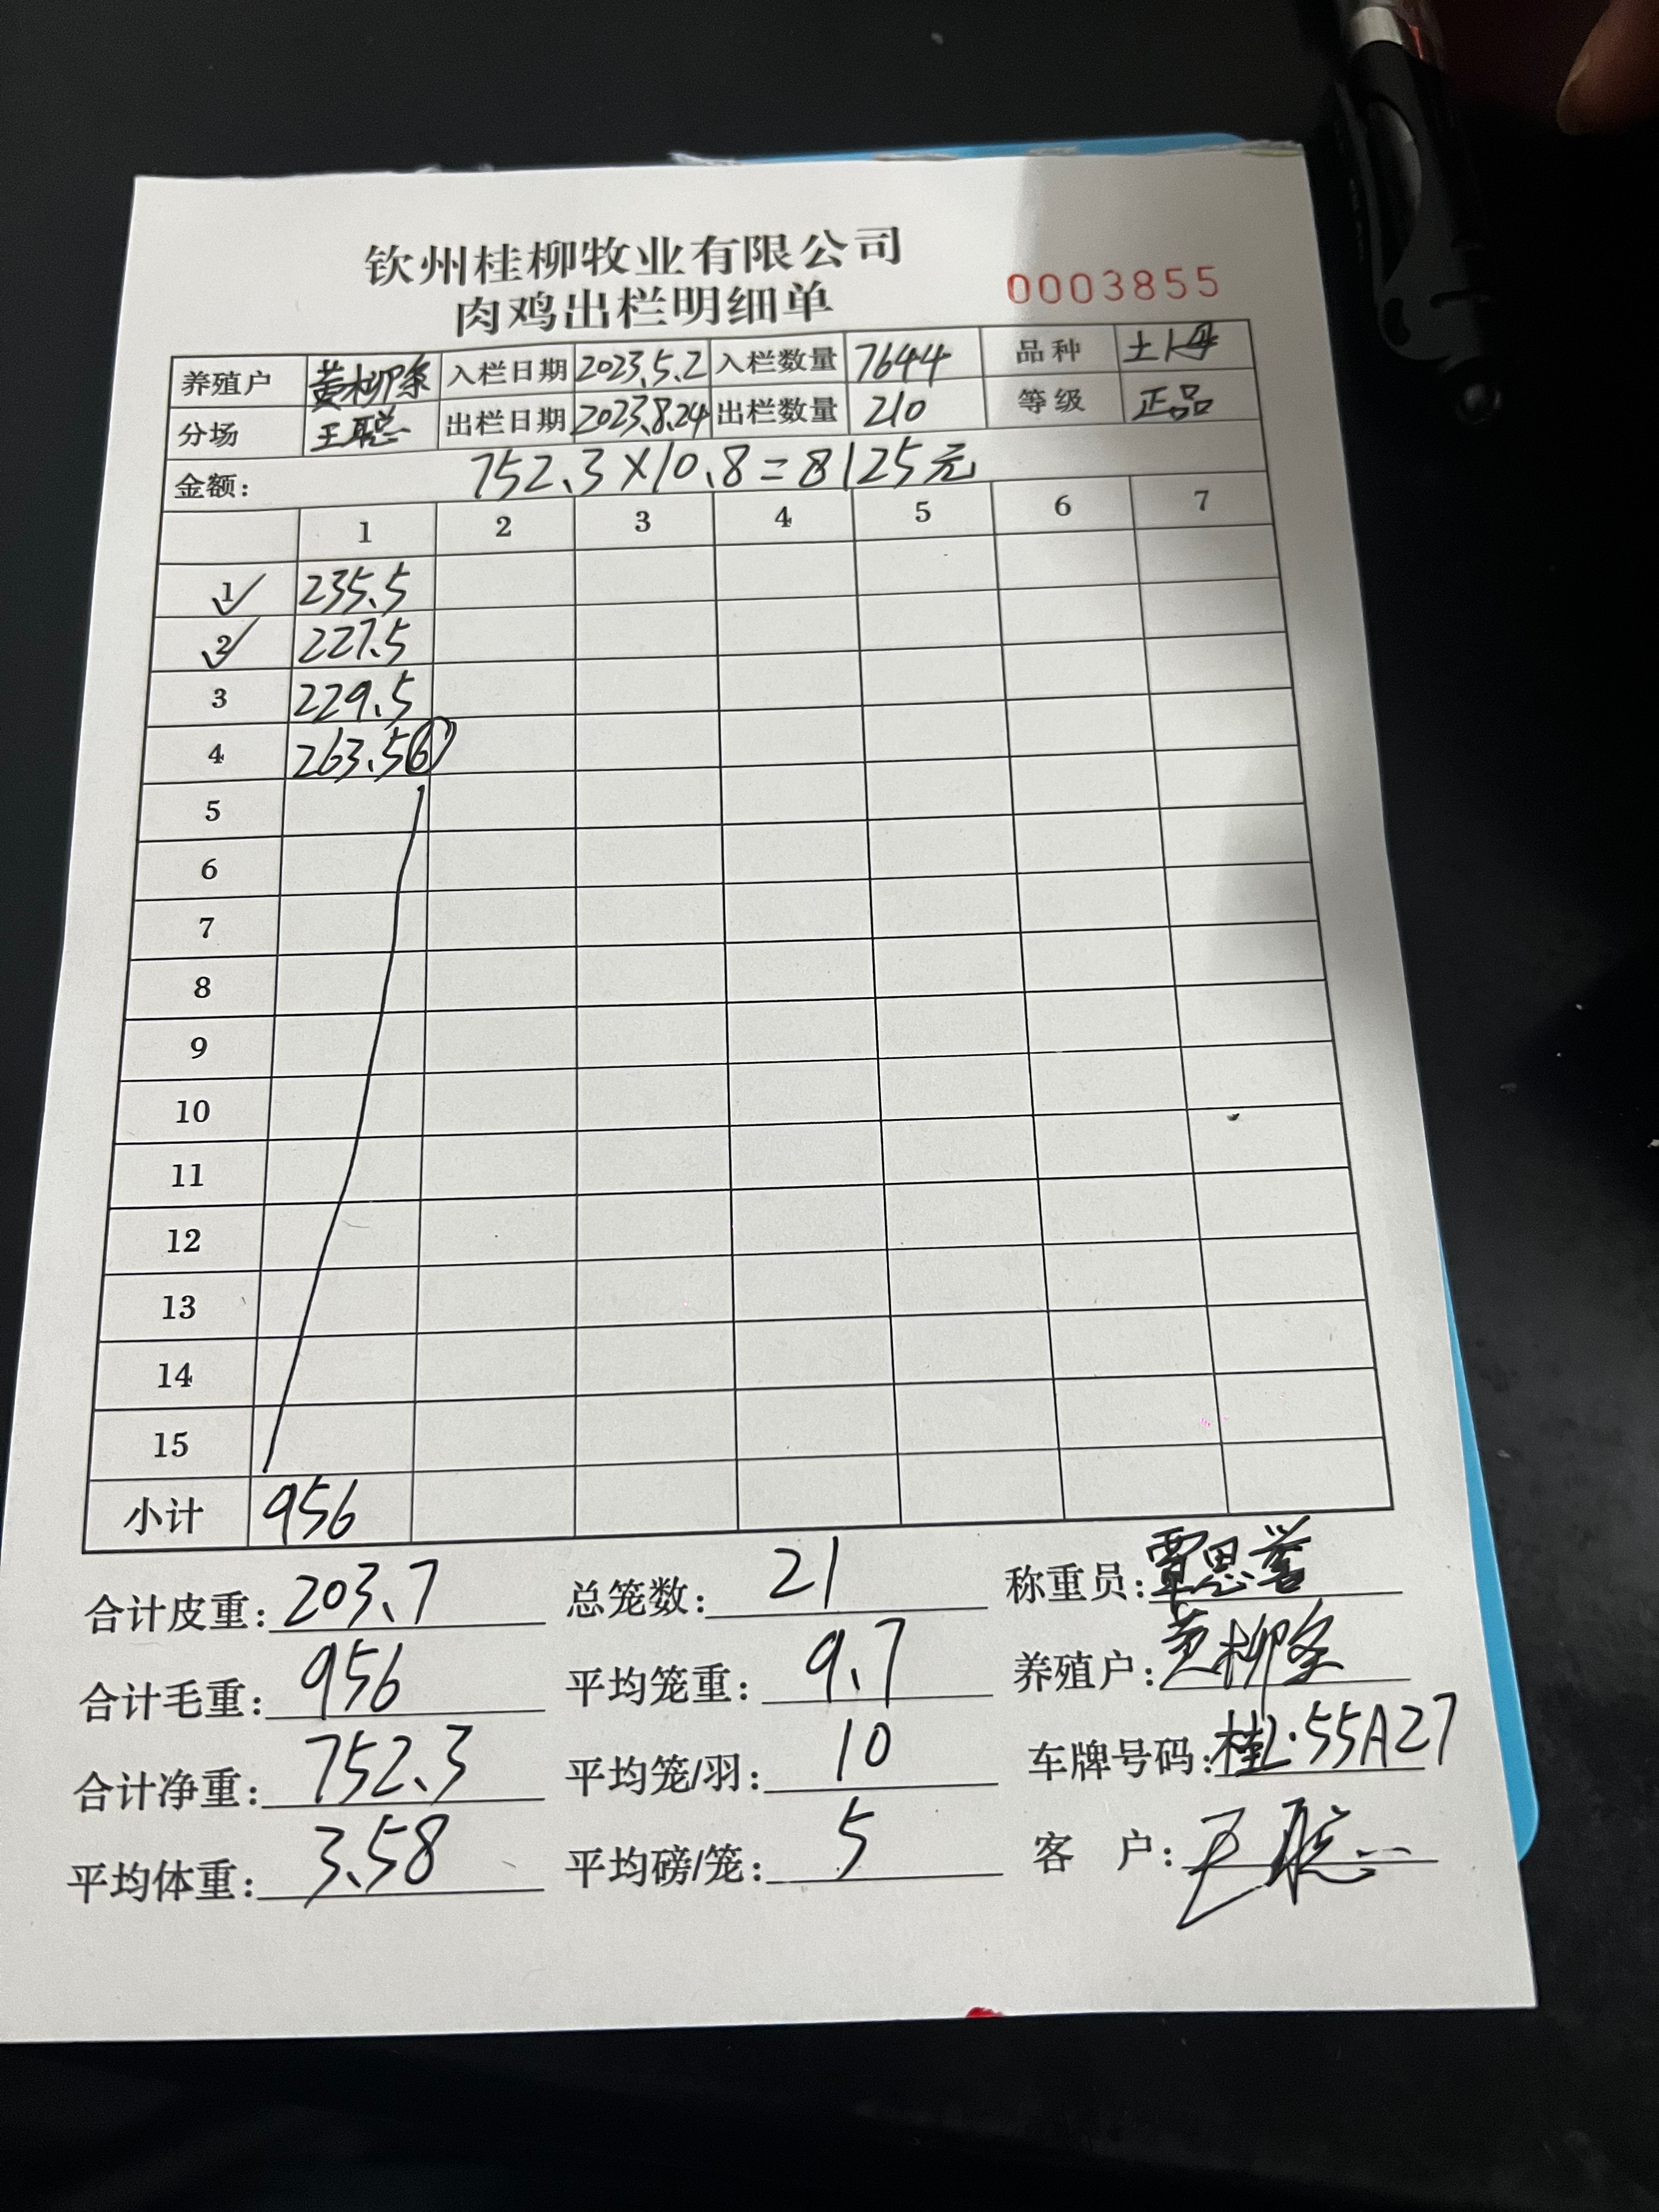 钦州桂柳牧业有限公司
肉鸡出栏明细单
0003855
养殖户 黄柳条 入栏日期 2023.5.2 入栏数量 7644 品种 土1母
分场 王聪 出栏日期 2023.8.24 出栏数量 210 等级 正品
金额: 752.3×10.8=8125元
1 2 3 4 5 6 7
1✓ 235.5
2✓ 227.5
3 229.5
4 263.5 6
5
6
7
8
9
10
11
12
13
14
15
小计 956
合计皮重: 203.7 总笼数: 21 称重员: 覃思誉
合计毛重: 956 平均笼重: 9.7 养殖户: 黄柳条
合计净重: 752.3 平均笼/羽: 10 车牌号码: 桂L·55A27
平均体重: 3.58 平均磅/笼: 5 客户: 王聪